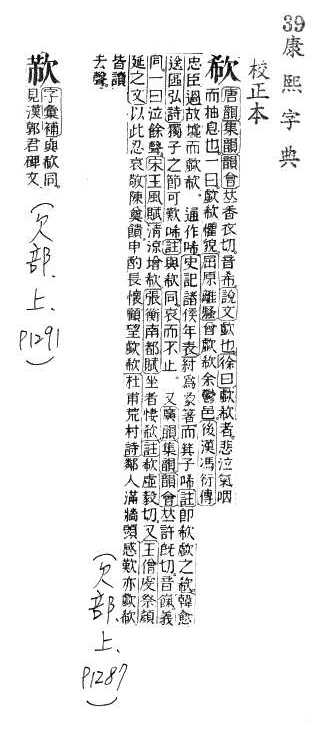 39
康熙字典
校正本
欷
唐韻集韻韻會𠀤香衣切音希說文歔也徐曰歔欷者悲泣氣咽
而抽息也一曰歔欷懼貌屈原離騷曾歔欷余鬱邑後漢馮衍傳
忠臣過故墟而歔欷。通作唏史記諸侯年表紂爲象箸而箕子唏註卽欷歔之欷韓愈
送區弘詩獨子之節可歎唏註與欷同哀而不止。又廣韻集韻韻會𠀤許旣切音餼義
同一曰泣餘聲宋玉風賦淸涼增欷張衡南都賦坐者悽欷註欷虛毅切又王僧虔祭顏
延之文以此忍哀敬陳奠饋申酌長懷顧望歔欷杜甫荒村詩鄰人滿牆頭感歎亦歔欷
皆讀
去聲。
(欠部.上.P1287)
字彙補與欷同
見漢郭君碑文
(欠部.上.P1291)